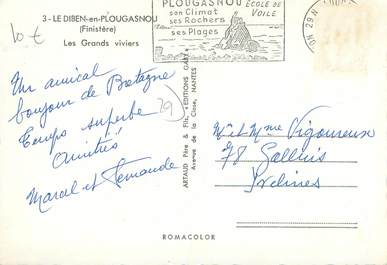 10 €
3 - LE DIBEN-en-PLOUGASNOU
(Finistère)
Les Grands viviers
PLOUGASNOU
son Climat
ses Rochers
ses Plages
ÉCOLE DE
VOILE
29 N
Un amical
bonjour de Bretagne
Temps superbe
Amitiés
Marcel et Fernande
29
ARTAUD Père & Fils, "ÉDITIONS GABY"
Avenue de la Close, NANTES
Mr et Mme Vigoureux
78 Galluis
Yvelines
ROMACOLOR